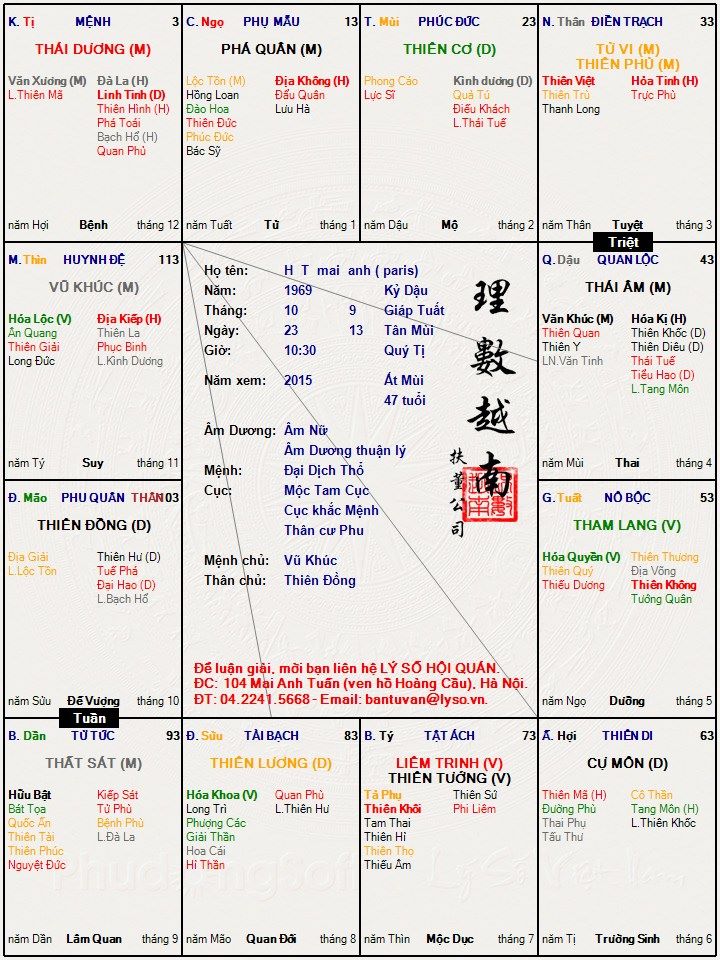 K. Tị MỆNH 3
THÁI DƯƠNG (M)
Văn Xương (M) Đà La (H)
L.Thiên Mã Linh Tinh (D)
Thiên Hình (H)
Phá Toái
Bạch Hổ (H)
Quan Phủ
năm Hợi Bệnh tháng 12
C. Ngọ PHỤ MẪU 13
PHÁ QUÂN (M)
Lộc Tồn (M) Địa Không (H)
Hồng Loan Đẩu Quân
Đào Hoa Lưu Hà
Thiên Đức
Phúc Đức
Bác Sỹ
năm Tuất Tử tháng 1
T. Mùi PHÚC ĐỨC 23
THIÊN CƠ (D)
Phong Cáo Kình dương (D)
Lực Sĩ Quả Tú
Điếu Khách
L.Thái Tuế
năm Dậu Mộ tháng 2
N. Thân ĐIỀN TRẠCH 33
TỬ VI (M)
THIÊN PHỦ (M)
Thiên Việt Hỏa Tinh (H)
Thiên Trù Trực Phù
Thanh Long
năm Thân Tuyệt tháng 3
Triệt
M. Thìn HUYNH ĐỆ 113
VŨ KHÚC (M)
Hóa Lộc (V) Địa Kiếp (H)
Ân Quang Thiên La
Thiên Giải Phục Binh
Long Đức L.Kình Dương
năm Tý Suy tháng 11
Họ tên: H T mai anh ( paris)
Năm: 1969 Kỷ Dậu
Tháng: 10 9 Giáp Tuất
Ngày: 23 13 Tân Mùi
Giờ: 10:30 Quý Tị
Năm xem: 2015 Ất Mùi
47 tuổi
Âm Dương: Âm Nữ
Âm Dương thuận lý
Mệnh: Đại Dịch Thổ
Cục: Mộc Tam Cục
Cục khắc Mệnh
Thân cư Phu
Mệnh chủ: Vũ Khúc
Thân chủ: Thiên Đồng
理數越南
扶董公司
Để luận giải, mời bạn liên hệ LÝ SỐ HỘI QUÁN.
ĐC: 104 Mai Anh Tuấn (ven hồ Hoàng Cầu), Hà Nội.
ĐT: 04.2241.5668 - Email: bantuvan@lyso.vn.
Q. Dậu QUAN LỘC 43
THÁI ÂM (M)
Văn Khúc (M) Hóa Kị (H)
Thiên Quan Thiên Khốc (D)
Thiên Y Thiên Diêu (D)
LN.Văn Tinh Thái Tuế
Tiểu Hao (D)
L.Tang Môn
năm Mùi Thai tháng 4
Đ. Mão PHU QUÂN THÂN 103
THIÊN ĐỒNG (D)
Địa Giải Thiên Hư (D)
L.Lộc Tồn Tuế Phá
Đại Hao (D)
L.Bạch Hổ
năm Sửu Đế Vượng tháng 10
Tuần
G. Tuất NÔ BỘC 53
THAM LANG (V)
Hóa Quyền (V) Thiên Thương
Thiên Quý Địa Võng
Thiếu Dương Thiên Không
Tướng Quân
năm Ngọ Dưỡng tháng 5
B. Dần TỬ TỨC 93
THẤT SÁT (M)
Hữu Bật Kiếp Sát
Bát Tọa Tử Phù
Quốc Ấn Bệnh Phù
Thiên Tài L.Đà La
Thiên Phúc
Nguyệt Đức
năm Dần Lâm Quan tháng 9
Đ. Sửu TÀI BẠCH 83
THIÊN LƯƠNG (D)
Hóa Khoa (V) Quan Phù
Long Trì L.Thiên Hư
Phượng Các
Giải Thần
Hoa Cái
Hỉ Thần
năm Mão Quan Đới tháng 8
B. Tý TẬT ÁCH 73
LIÊM TRINH (V)
THIÊN TƯỚNG (V)
Tả Phụ Thiên Sứ
Thiên Khôi Phi Liêm
Tam Thai
Thiên Hỉ
Thiên Thọ
Thiếu Âm
năm Thìn Mộc Dục tháng 7
Ấ. Hợi THIÊN DI 63
CỰ MÔN (D)
Thiên Mã (H) Cô Thần
Đường Phù Tang Môn (H)
Thai Phụ L.Thiên Khốc
Tấu Thư
năm Tị Trường Sinh tháng 6